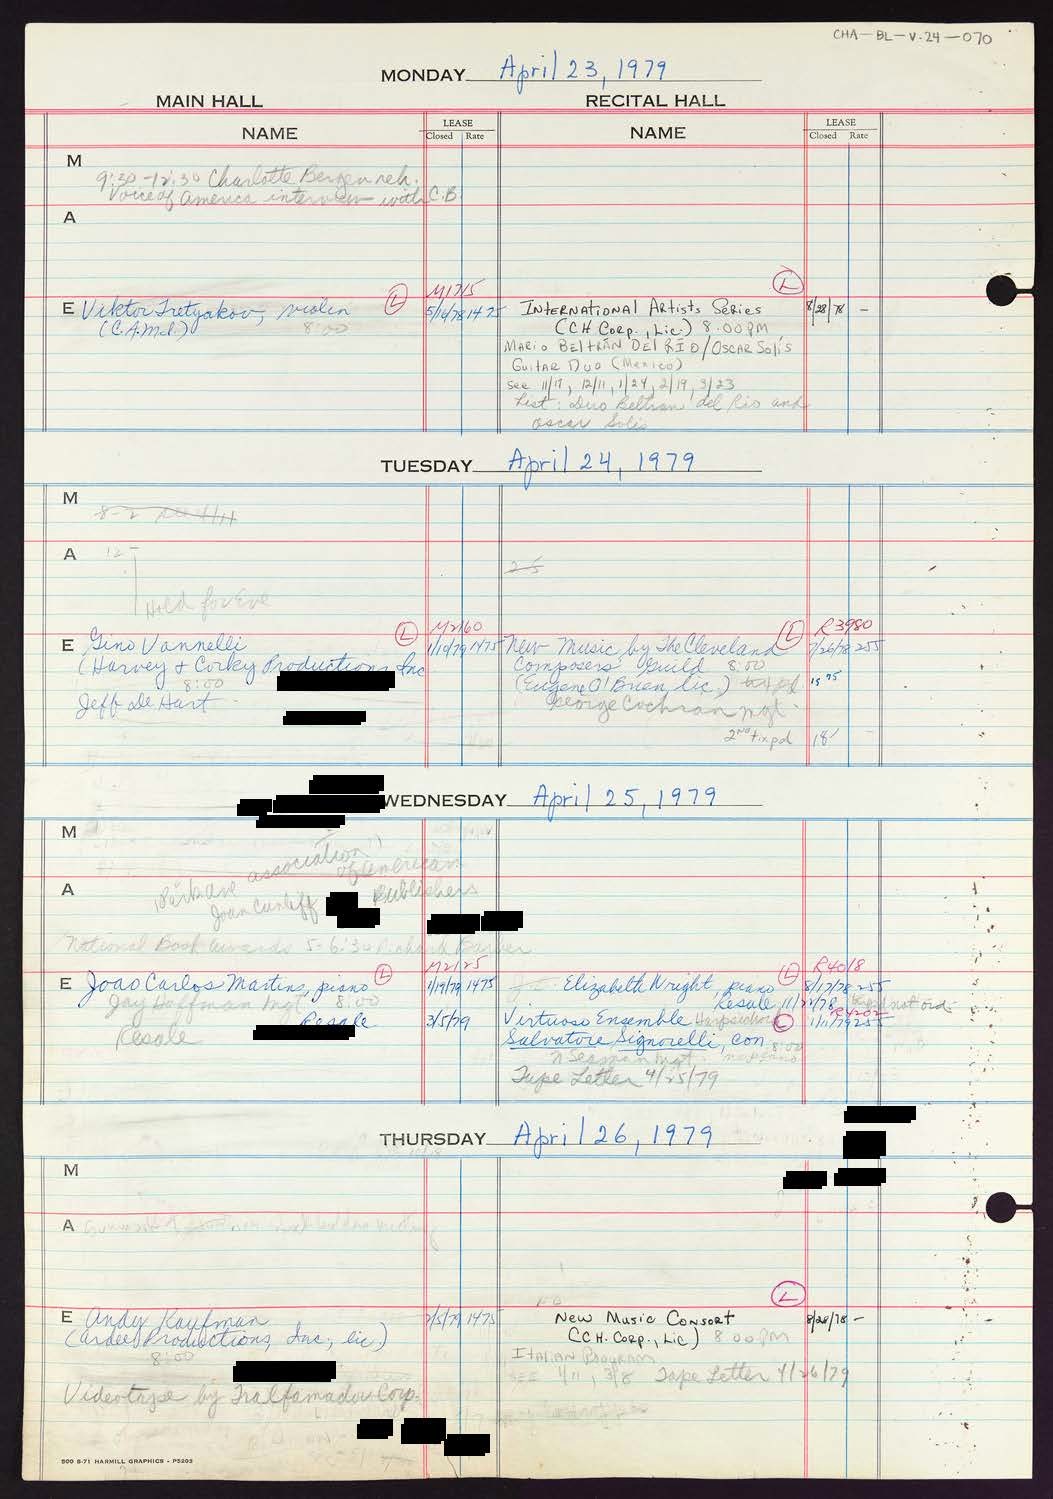 CHA-BL-V.24-070
MONDAY April 23, 1979
MAIN HALL RECITAL HALL
NAME LEASE Closed Rate NAME LEASE Closed Rate
M
9:30-12:30 Charlotte Bergen reh.
Voice of America interview with C.B.
A
M1715
E Viktor Tretyakov, violin L 5/16/78 1475
(C.A.M.I.) 8:00
L
International Artists Series 8/28/78 -
(CH Corp., Lic.) 8:00PM
Mario Beltrán Del Río/Oscar Solís
Guitar Duo (Mexico)
See 11/17, 12/11, 1/24, 2/19, 3/23
List: Duo Beltran del Rio and
Oscar Solis
TUESDAY April 24, 1979
M
8-2
A 12
2-5
Hold for Eve
M2160
E Gino Vannelli L 1/19/79 1475
(Harvey & Corky Productions, Inc
8:00
Jeff De Hart
L R3980
New Music by The Cleveland 7/26/78 255
Composers' Guild 8:00
(Eugene O'Brien, lic.) 15 75
George Cochran mgt.
2nd tix pd 18
WEDNESDAY April 25, 1979
M
association
of American
A
Publishers
Joan Cunliff
National Book Awards 5-6:30 Richard Barber
M2125
E Joao Carlos Martins, piano L 1/19/79 1475
Jay Hoffman Mgt 8:00
Resale 3/5/79
Resale
L R4018
Elizabeth Wright, piano 8/17/78 255
Resale 11/22/78 not ord.
R4202
Virtuoso Ensemble Harpsichord L 1/11/79 255
Salvatore Signorelli, con. 8:00
N Seaman Mgt. no piano
Tape Letter 4/25/79
THURSDAY April 26, 1979
M
A
E Andy Kaufman 2/5/79 1475
(Ardee Productions, Inc., lic)
8:00
Videotape by Tralfamadu Corp.
L
New Music Consort 8/28/78 -
(C.H. Corp., Lic) 8:00PM
Italian Program
SEE 1/11, 3/8 Tape Letter 4/26/79
500 8-71 HARMILL GRAPHICS - P5203